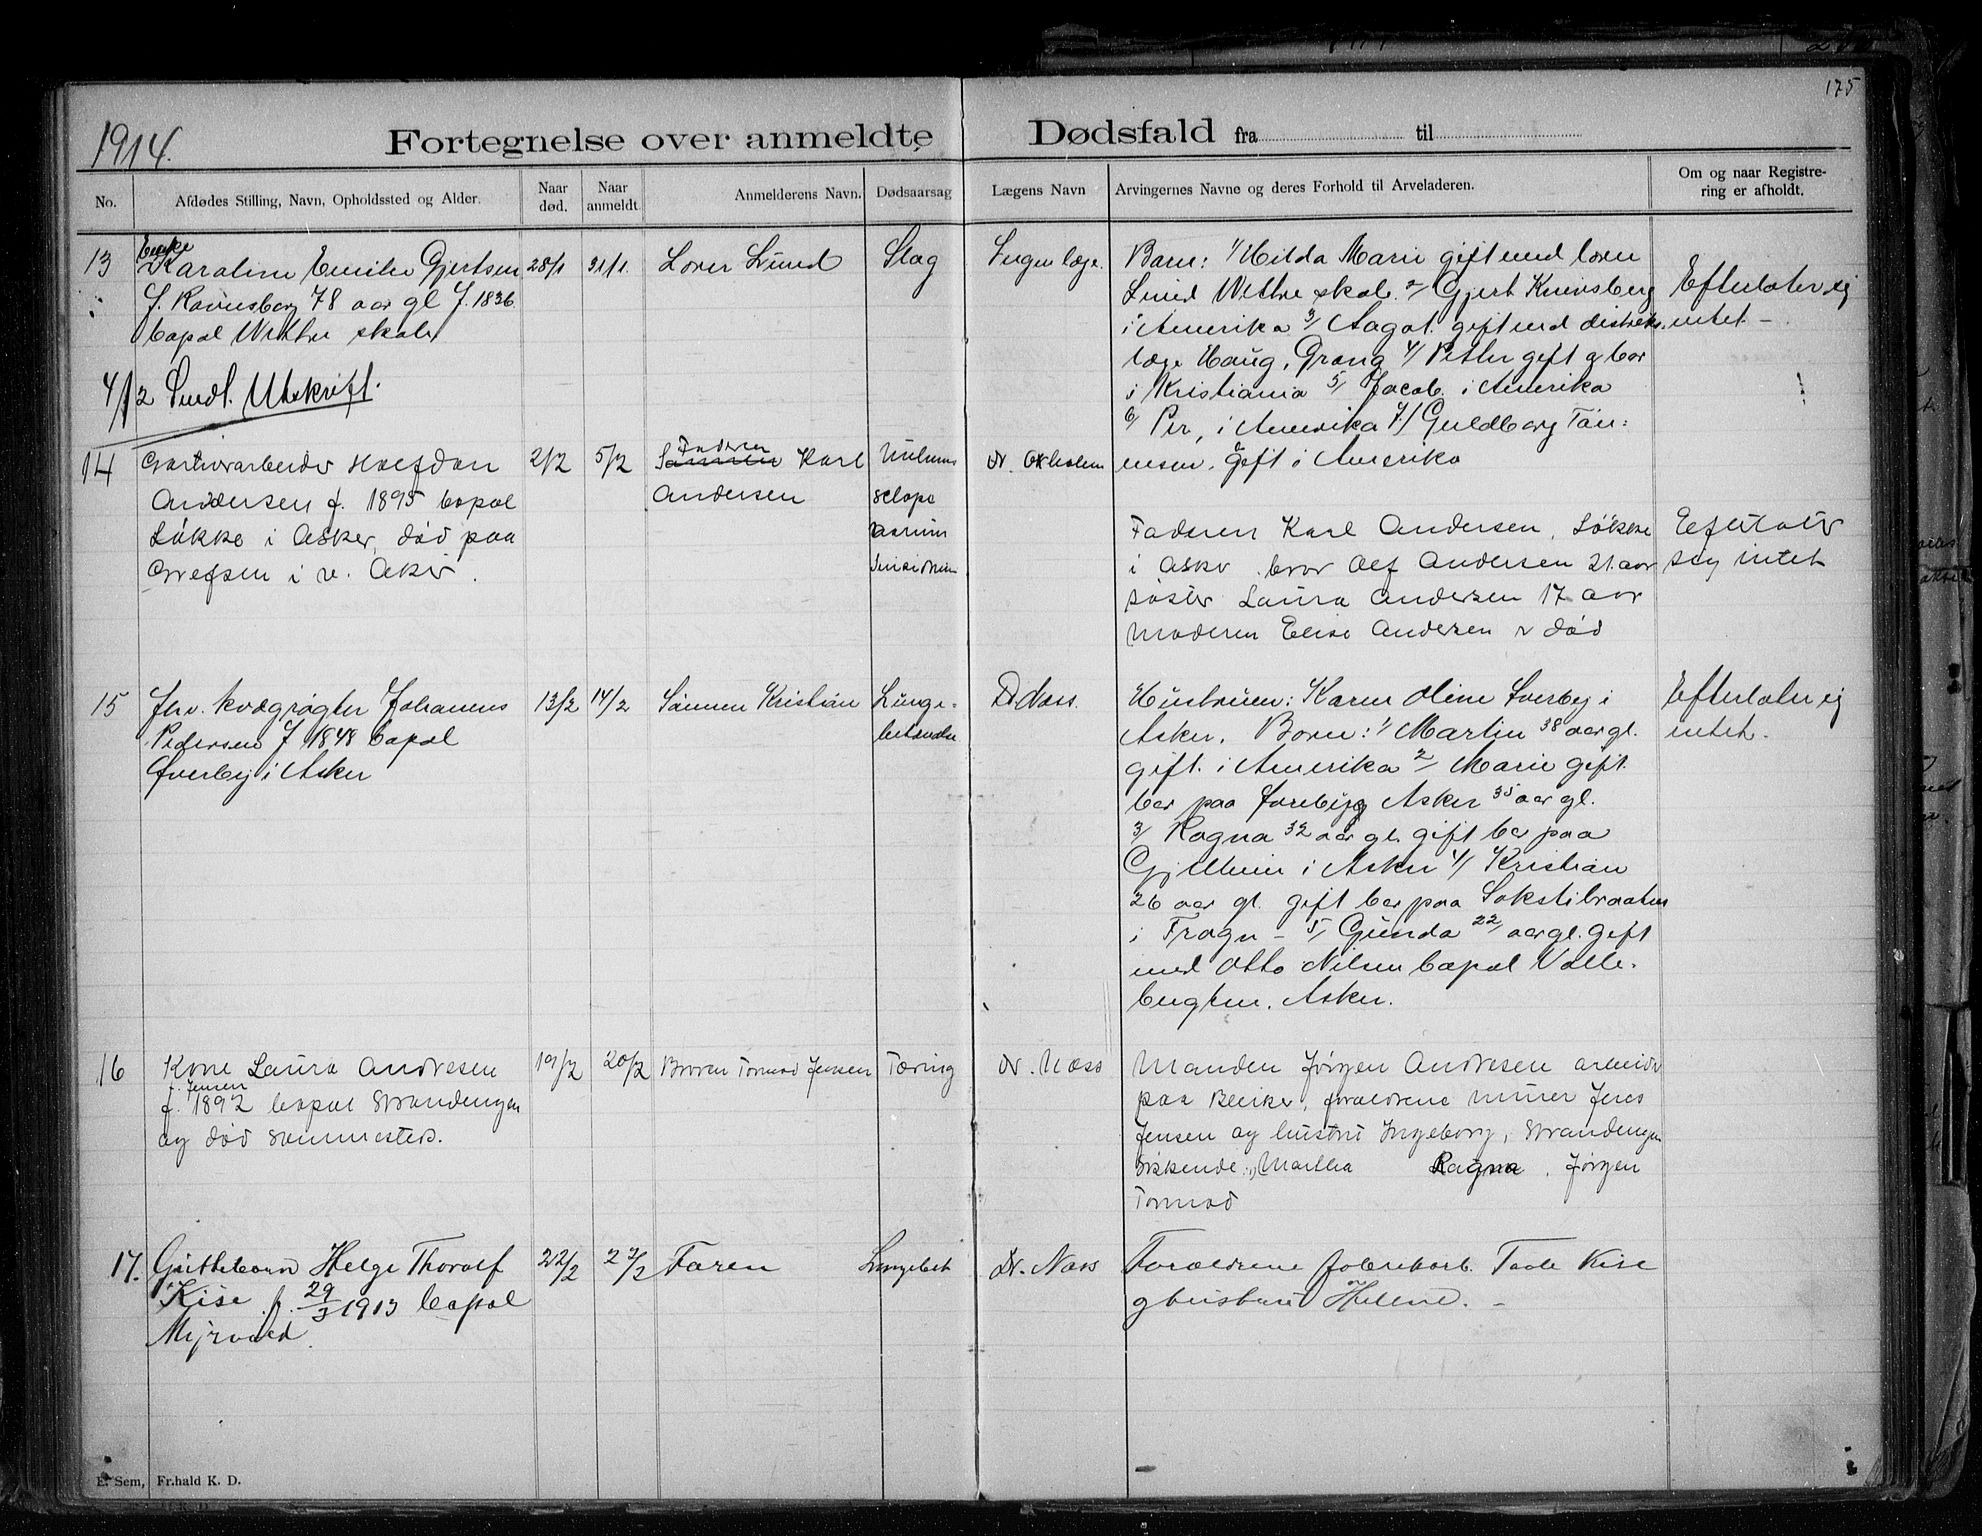 175
1914.
Fortegnelse over anmeldte Dødsfald fra til
No.
Afdødes Stilling, Navn, Opholdssted og Alder.
Naar død.
Naar anmeldt.
Anmelderens Navn.
Dødsaarsag
Lægens Navn
Arvingernes Navne og deres Forhold til Arveladeren.
Om og naar Registrering er afholdt.
13
Enke
Karoline Emilie Gjertsen
f. Ravnsborg 78 aar gl f. 1836
bopæl Wettre skole
28/1
31/1.
Lover Lund
Slag
Ingen læge.
Barn: 1/ Hilda Marie gift med
Lund Wettre skole 2/ Gjert
i Amerika 3/ Aagot. gift med distrikts.
læge Haug, Grong 4/ Petter gift o bor
i Kristiania 5/ Jacob i Amerika
6/ Per, i Amerika 7/ Guldborg Tøn:
nesen. gift i Amerika
Efterlater sig
intet -
4/2 Sendt. Utskrift.
14
Gartnerarbeider Halfdan
Andersen f. 1895 bopæl
Løkke i Asker, død paa
Grefsen i v. Aker.
2/2
5/2
Faderen
Karl
Andersen
Dr.
Faderen Karl Andersen, Løkke
i Asker. bror Alf Andersen 21. aar
søster Laura Andersen 17 aar
Moderen Elise Andersen er død
Efterlater
sig intet
15
fhv. kvægrøgter Johannes
Pedersen f 1848 bopæl
Øverby i Asker
13/2
14/2
Sønnen Kristian
Lunge-
betændelse
Dr Næss.
Hustruen: Karen Oline Øverby i
Asker. Børn: 1/ Martin 38 aar gl.
gift. i Amerika 2/ Marie gift.
bor paa Asker 35 aar gl.
3/ Ragna 32 aar gl. gift bor paa
Gjellum i Asker 4/ Kristian
26 aar gl. gift bor paa
i Frogn - 5/ Gunda 22 aar gl. gift
med Otto Nilsen bopæl Valle-
bugten. Asker.
Efterlater sig
intet.
16
Kone Laura Andresen
f. Jensen
f. 1892 bopæl Strandengen
og død sammesteds.
19/2
20/2
Broren Tormod Jensen
Tæring
Dr. Næss
Manden Jørgen Andresen arbeider
paa Bleiker, forældrene murer Jens
Jensen og hustru Ingeborg, Strandengen
Søskende: Martha Ragna, Jørgen
Tormod
17.
Guttebarn Helge Thoralf
Kise. f. 29/3 1913 bopæl
Myrvold
22/2
27/2
Faren
Lungebet
Dr. Næss
Forældrene Kise
og hustru Helene. -
E. Sem, Fr.hald K. D.